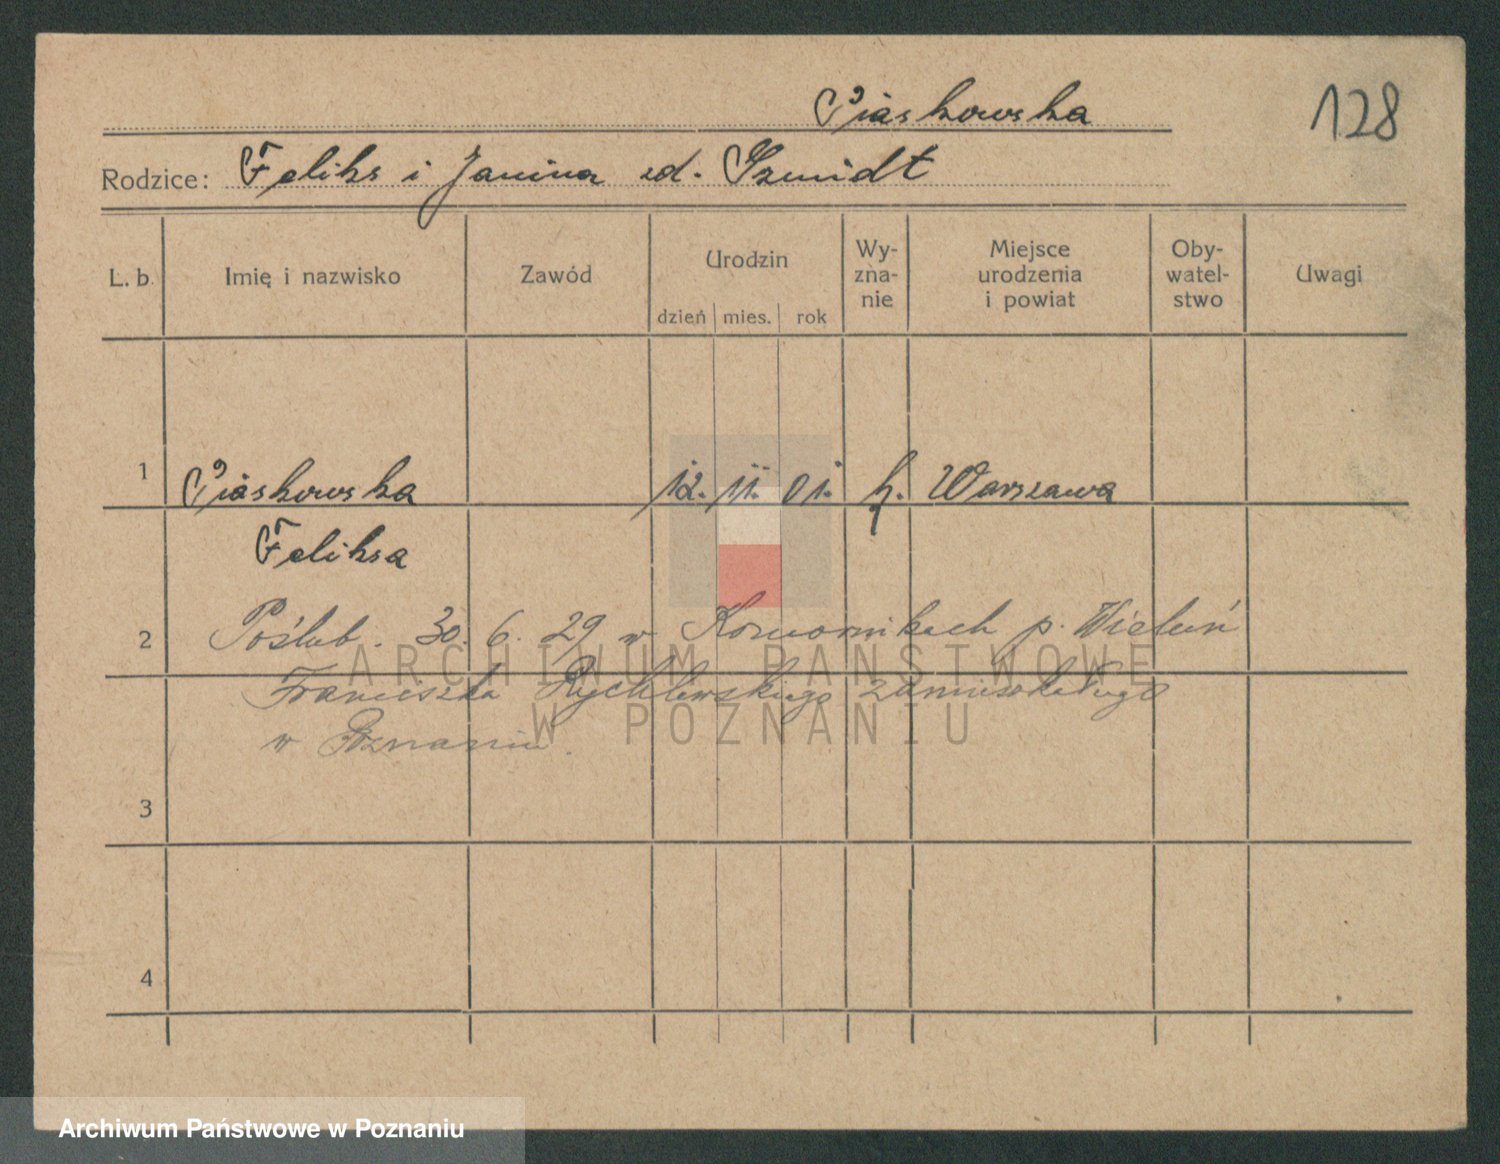 Piaskowska
128
Rodzice: Feliks i Janina zd. Szmidt
L. b. Imię i nazwisko Zawód Urodzin dzień mies. rok Wy-zna-nie Miejsce urodzenia i powiat Oby-watel-stwo Uwagi
1 Piaskowska 12. 11. 01. k. Warszawa
Feliksa
2 Poślub. 30. 6. 29 w Komornikach p. Wieluń
Franciszka Rychlewskiego zamieszkałego
w Poznaniu.
3
4
ARCHIWUM PAŃSTWOWE
W POZNANIU
Archiwum Państwowe w Poznaniu